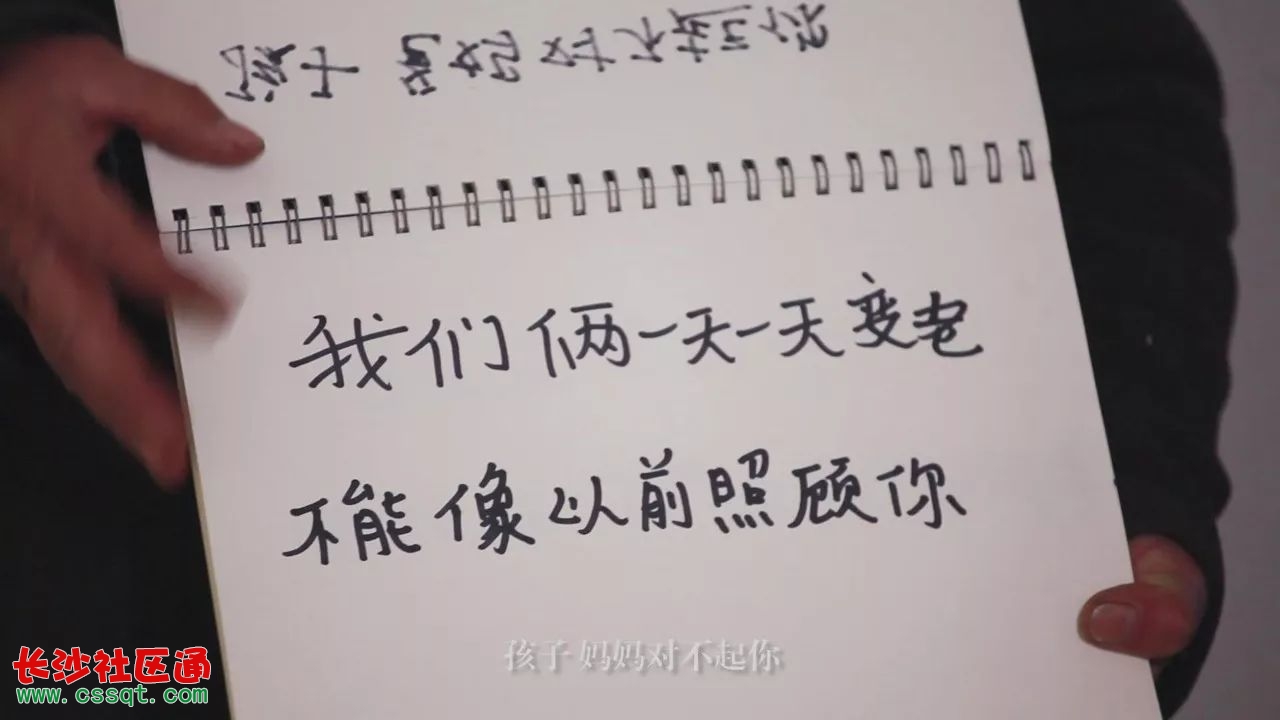 孩子 妈妈对不起你
我们俩一天一天变老
不能像以前照顾你
孩子 妈妈对不起你
长沙社区通
www.cssqt.com